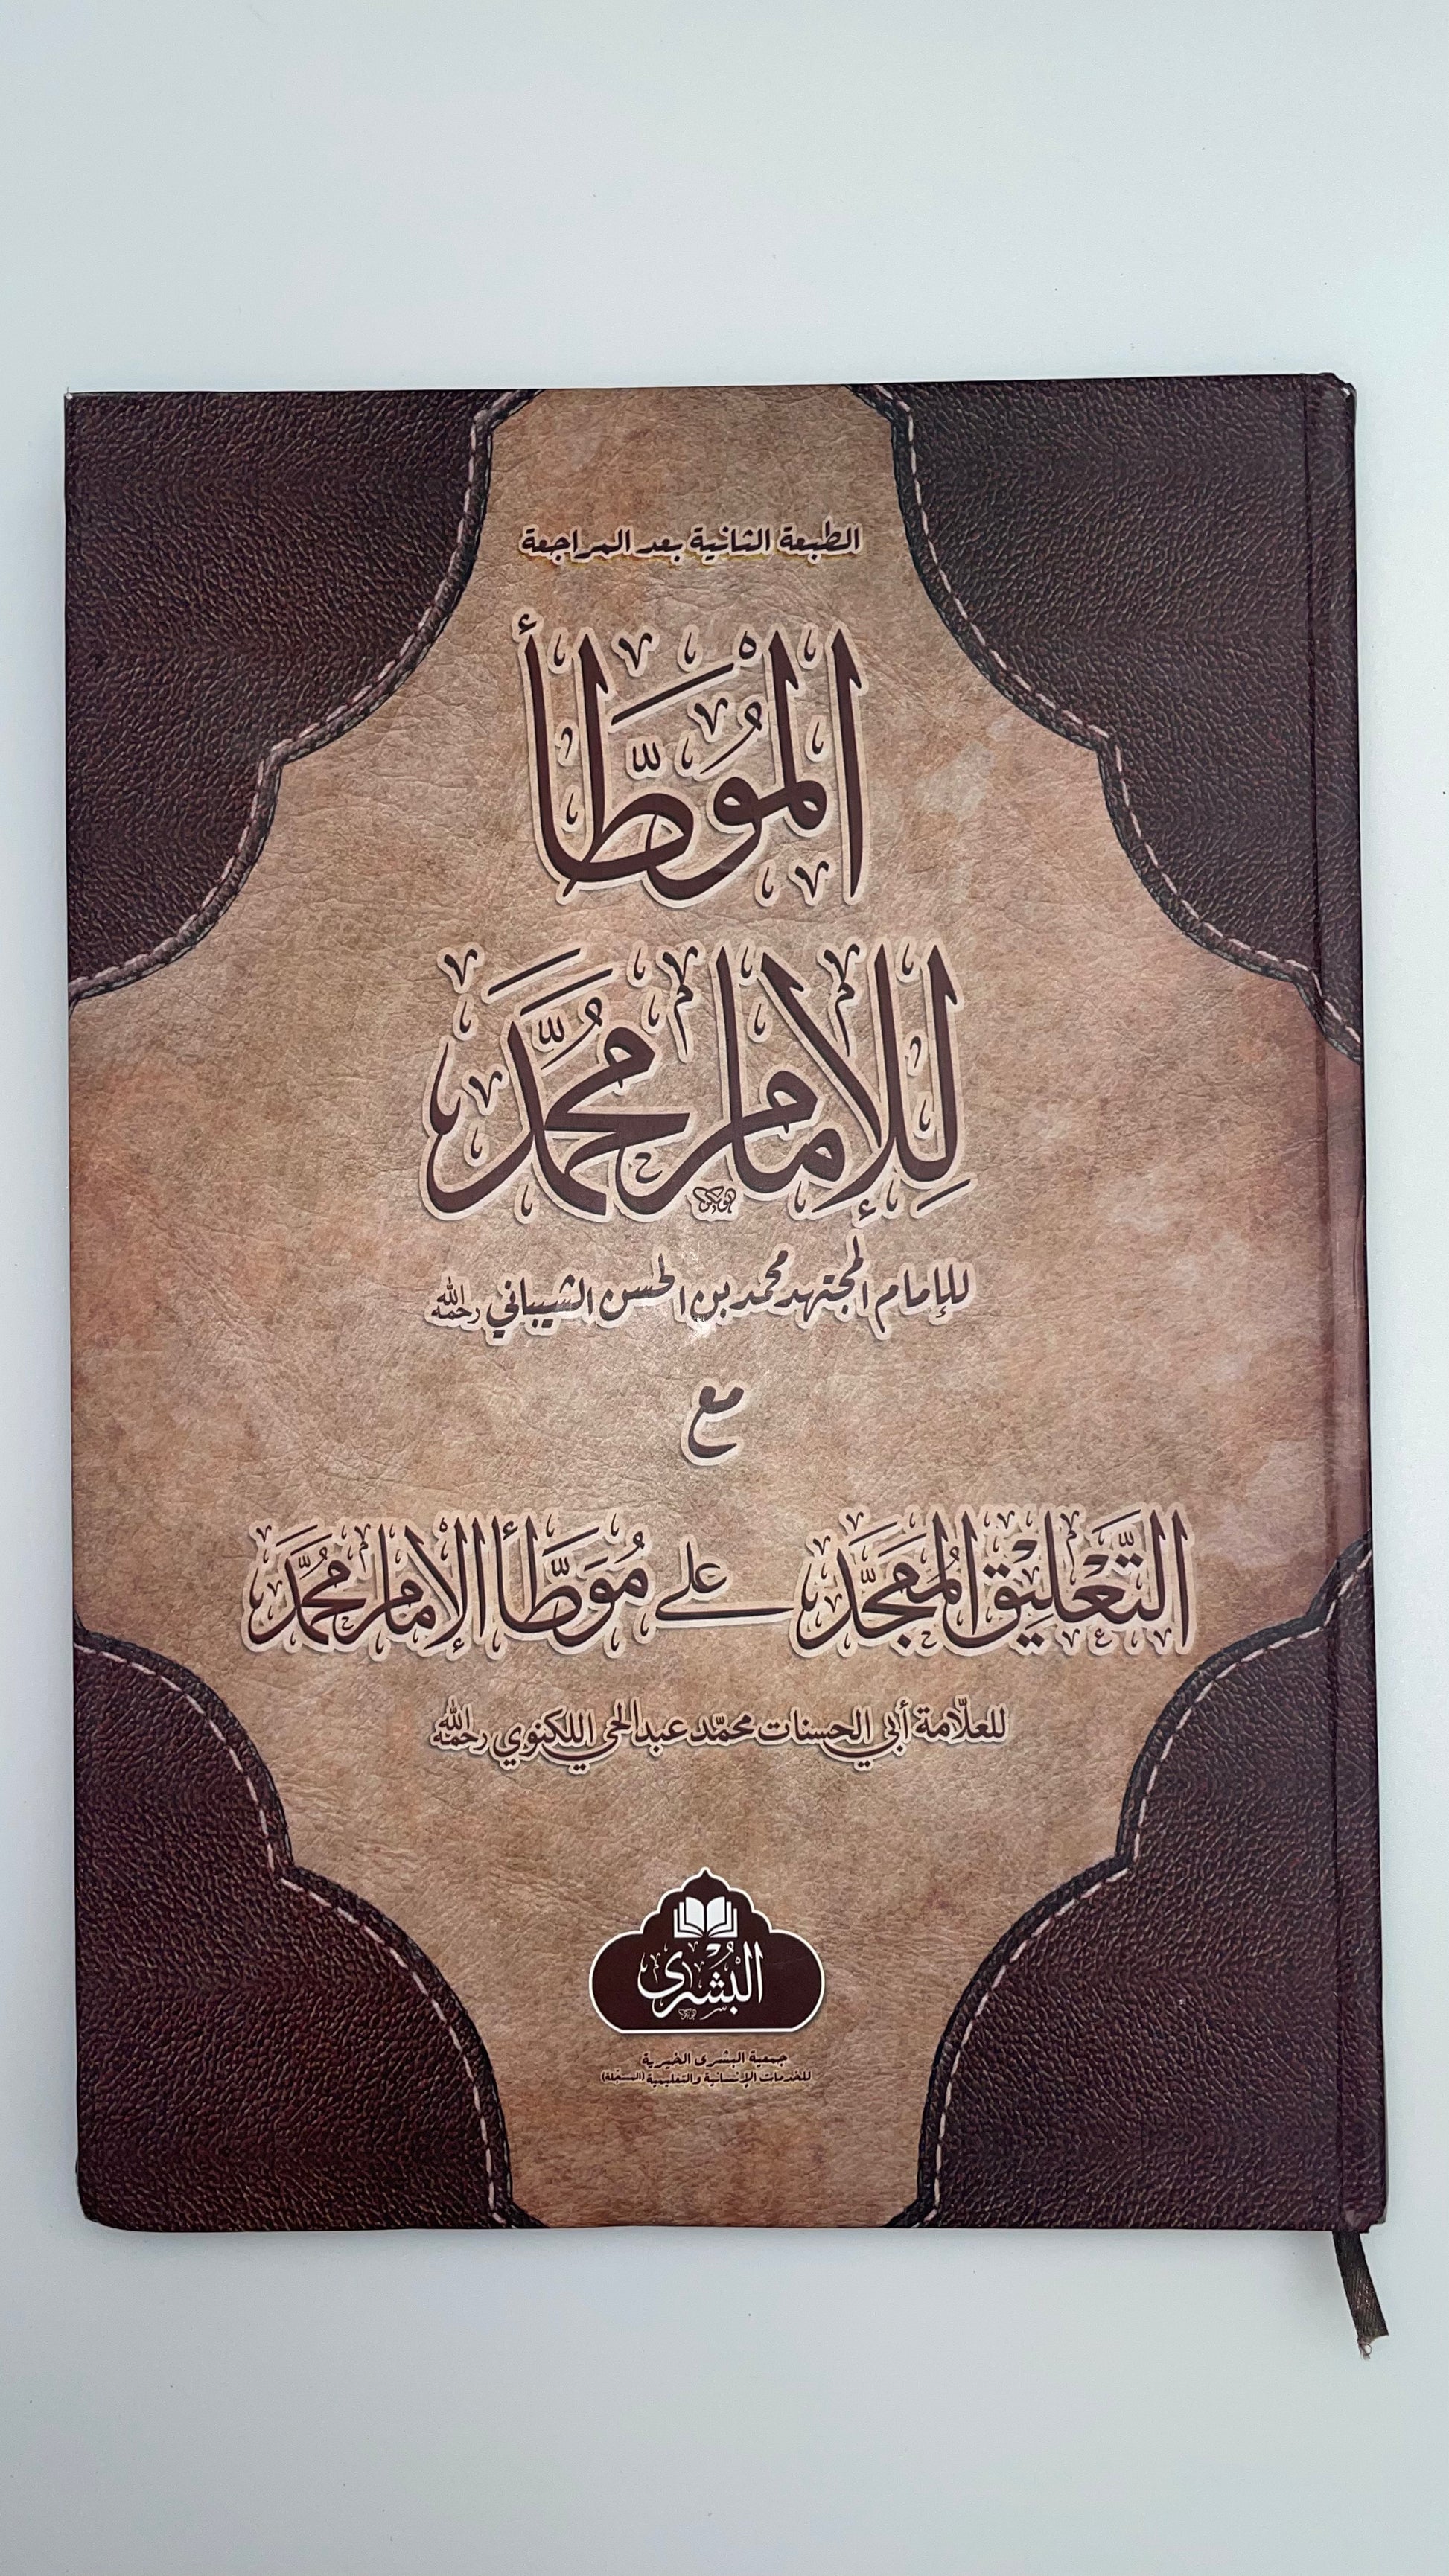 الطبعة الثانية بعد المراجعة
المُوَطَّأ
لِلإمام مُحَمَّد
للإمام المجتهد محمد بن الحسن الشيباني رحمه الله
مع
التَّعْلِيْقُ المُمَجَّد على مُوَطَّأ الإمام مُحَمَّد
للعلّامة أبي الحسنات محمّد عبد الحي اللكنوي رحمه الله
البُشْرى
جمعية البشرى الخيرية
للخدمات الإنسانية والتعليمية (المسجّلة)